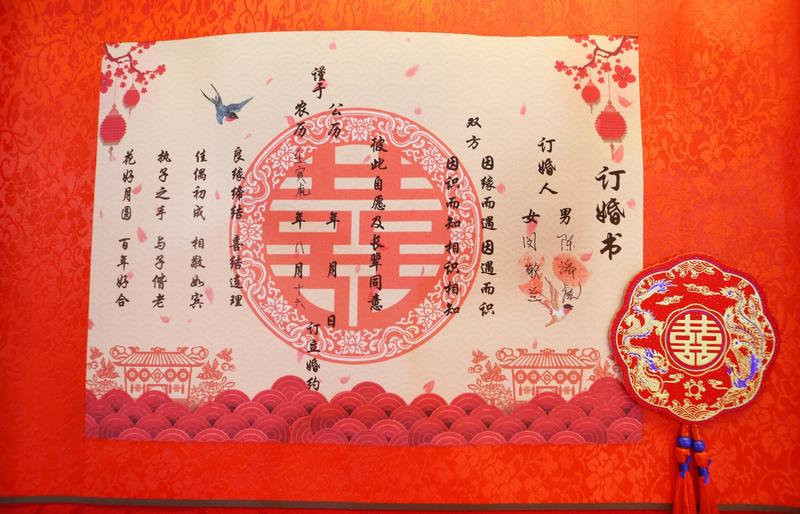 订婚书
订婚人
男 陈
女 兰
双方
因缘而遇因遇而识
因识而知相识相知
彼此自愿及长辈同意
谨于
公历 年 月 日
农历 壬寅虎 年 八 月 十六
订立婚约
良缘缔结 喜结连理
佳偶初成 相敬如宾
执子之手 与子偕老
花好月圆 百年好合
囍
囍